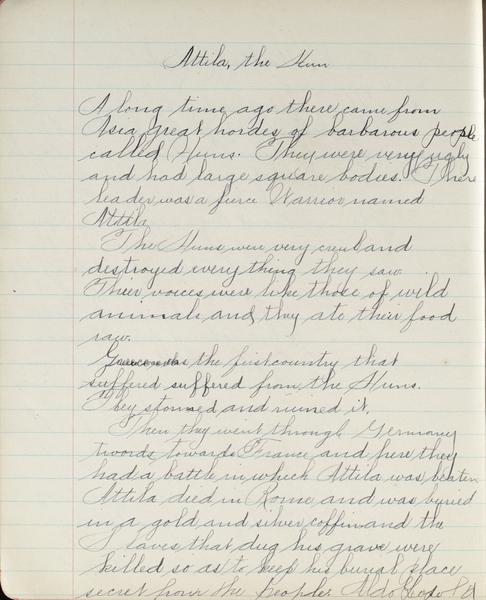 Attila, the Hun
A long time ago there came from
Asia great hordes of barbarous people
called Huns. They were very ugly
and had large square bodies. There
leader was a fierce Warrior named
Attila
The Huns were very creul and
destroyed every thing they saw.
Their voices were like those of wild
animals and they ate their food
raw.
Greece was the first country that
suffered suffered from the Huns.
They stormed and ruined it.
Then they went through Germany
twords towards France and here they
had a battle in which Attila was beaten
Attila died in Rome and was buried
in a gold and silver coffin and the
Slaves that dug his grave were
killed so as to keep his burial place
secret from the People.